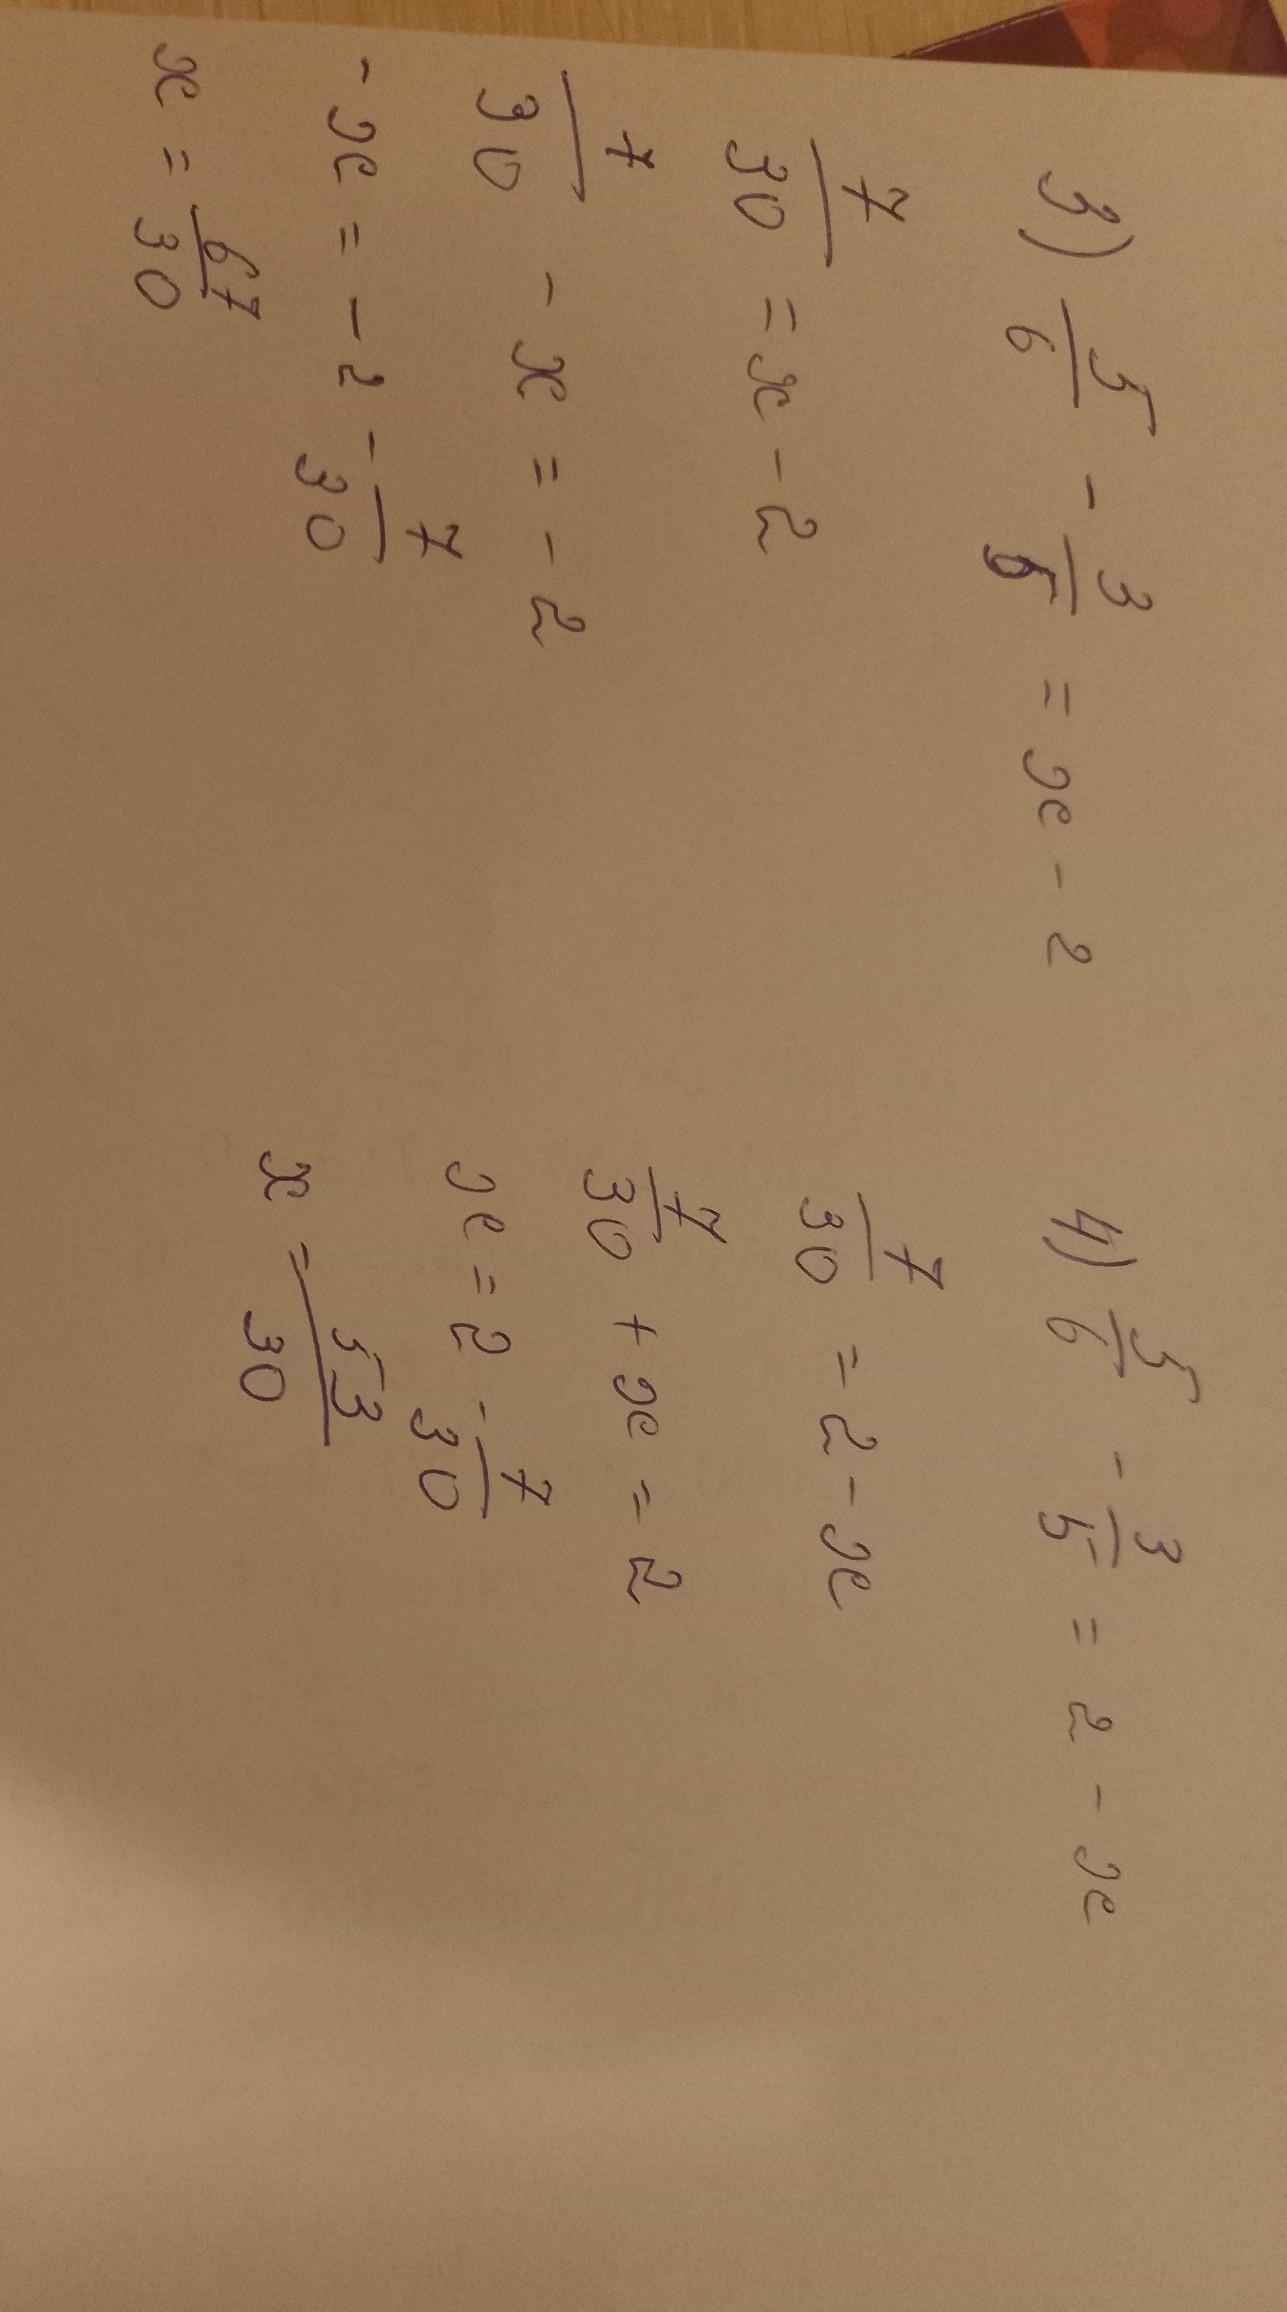 3) 5/6 - 3/5 = x - 2
7/30 = x - 2
7/30 - x = - 2
- x = - 2 - 7/30
x = 67/30
4) 5/6 - 3/5 = 2 - x
7/30 = 2 - x
7/30 + x = 2
x = 2 - 7/30
x = 53/30